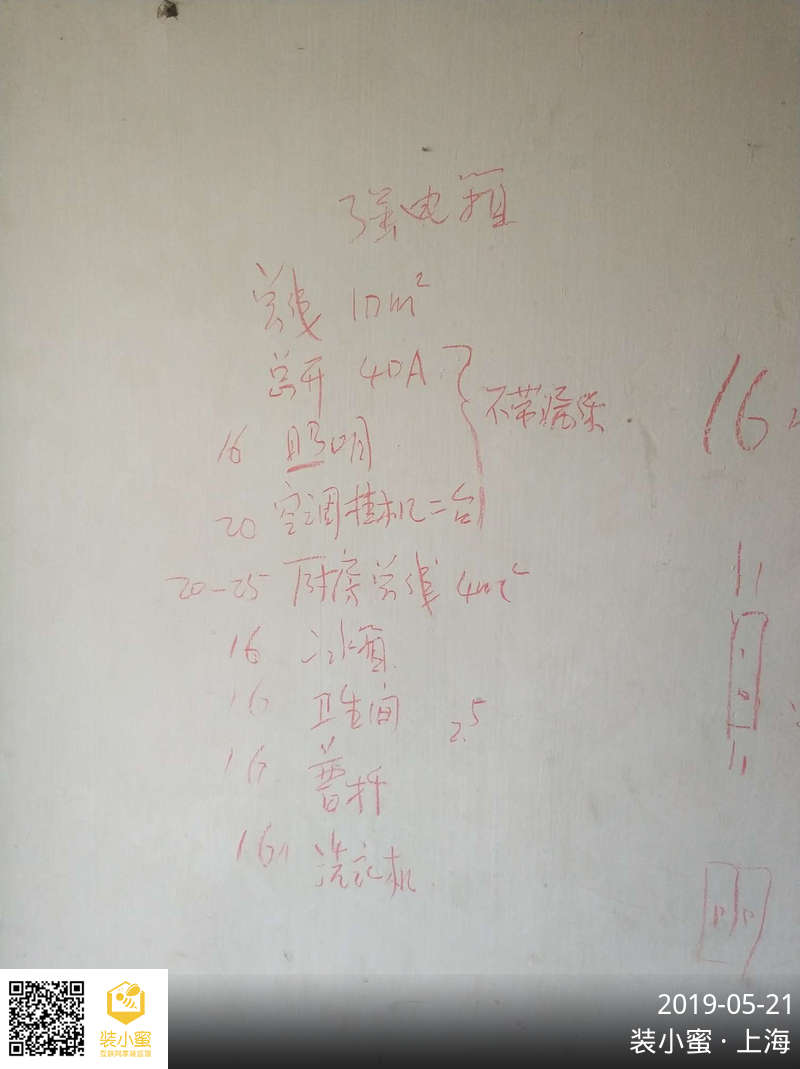 强电箱
总线 10m²
总开 40A
不带漏保
16 照明
20 空调挂机二台
20-25 厨房总线 4m²
16 冰箱
16 卫生间 2.5
16 普插
16A 洗衣机
16
2019-05-21
装小蜜
装小蜜 · 上海